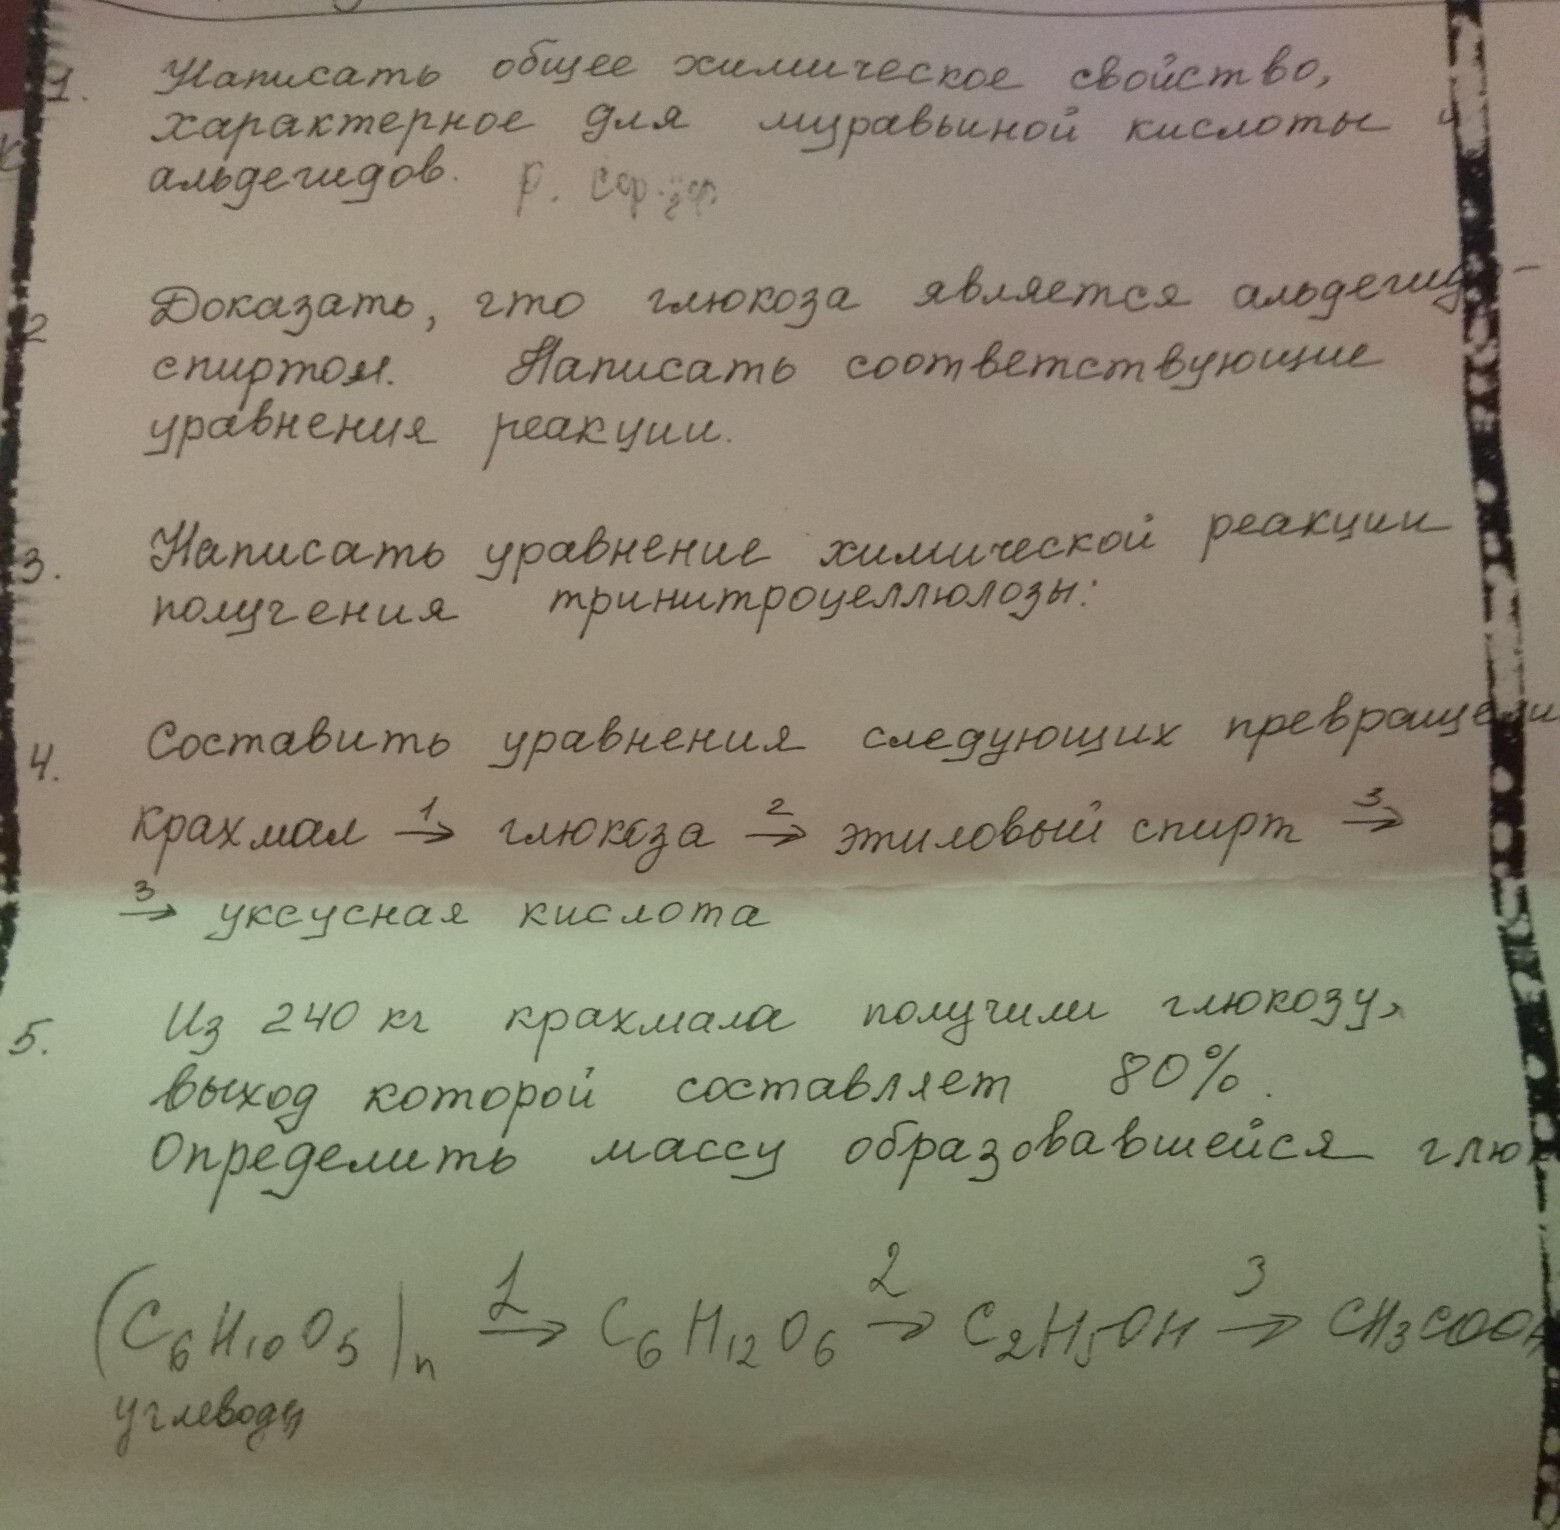 1. Написать общее химическое свойство,
характерное для муравьиной кислоты и
альдегидов. р. сер.
2 Доказать, что глюкоза является альдегидо-
спиртом. Написать соответствующие
уравнения реакции.
3. Написать уравнение химической реакции
получения тринитроцеллюлозы:
4. Составить уравнения следующих
крахмал 1→ глюкоза 2→ этиловый спирт 3→
3→ уксусная кислота
5. Из 240 кг крахмала получили глюкозу,
выход которой составляет 80%.
Определить массу образовавшейся
(C6H10O5)n 1→ C6H12O6 2→ C2H5OH 3→ CH3COOH
углеводы